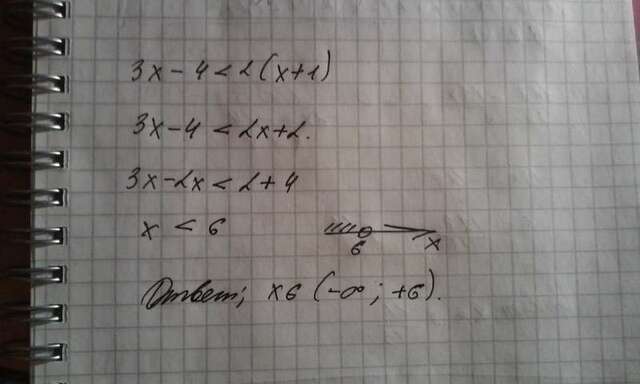 3x - 4 < 2(x+1)
3x - 4 < 2x + 2.
3x - 2x < 2 + 4
x < 6
6 x
Ответ; x ϵ (-∞; +6).